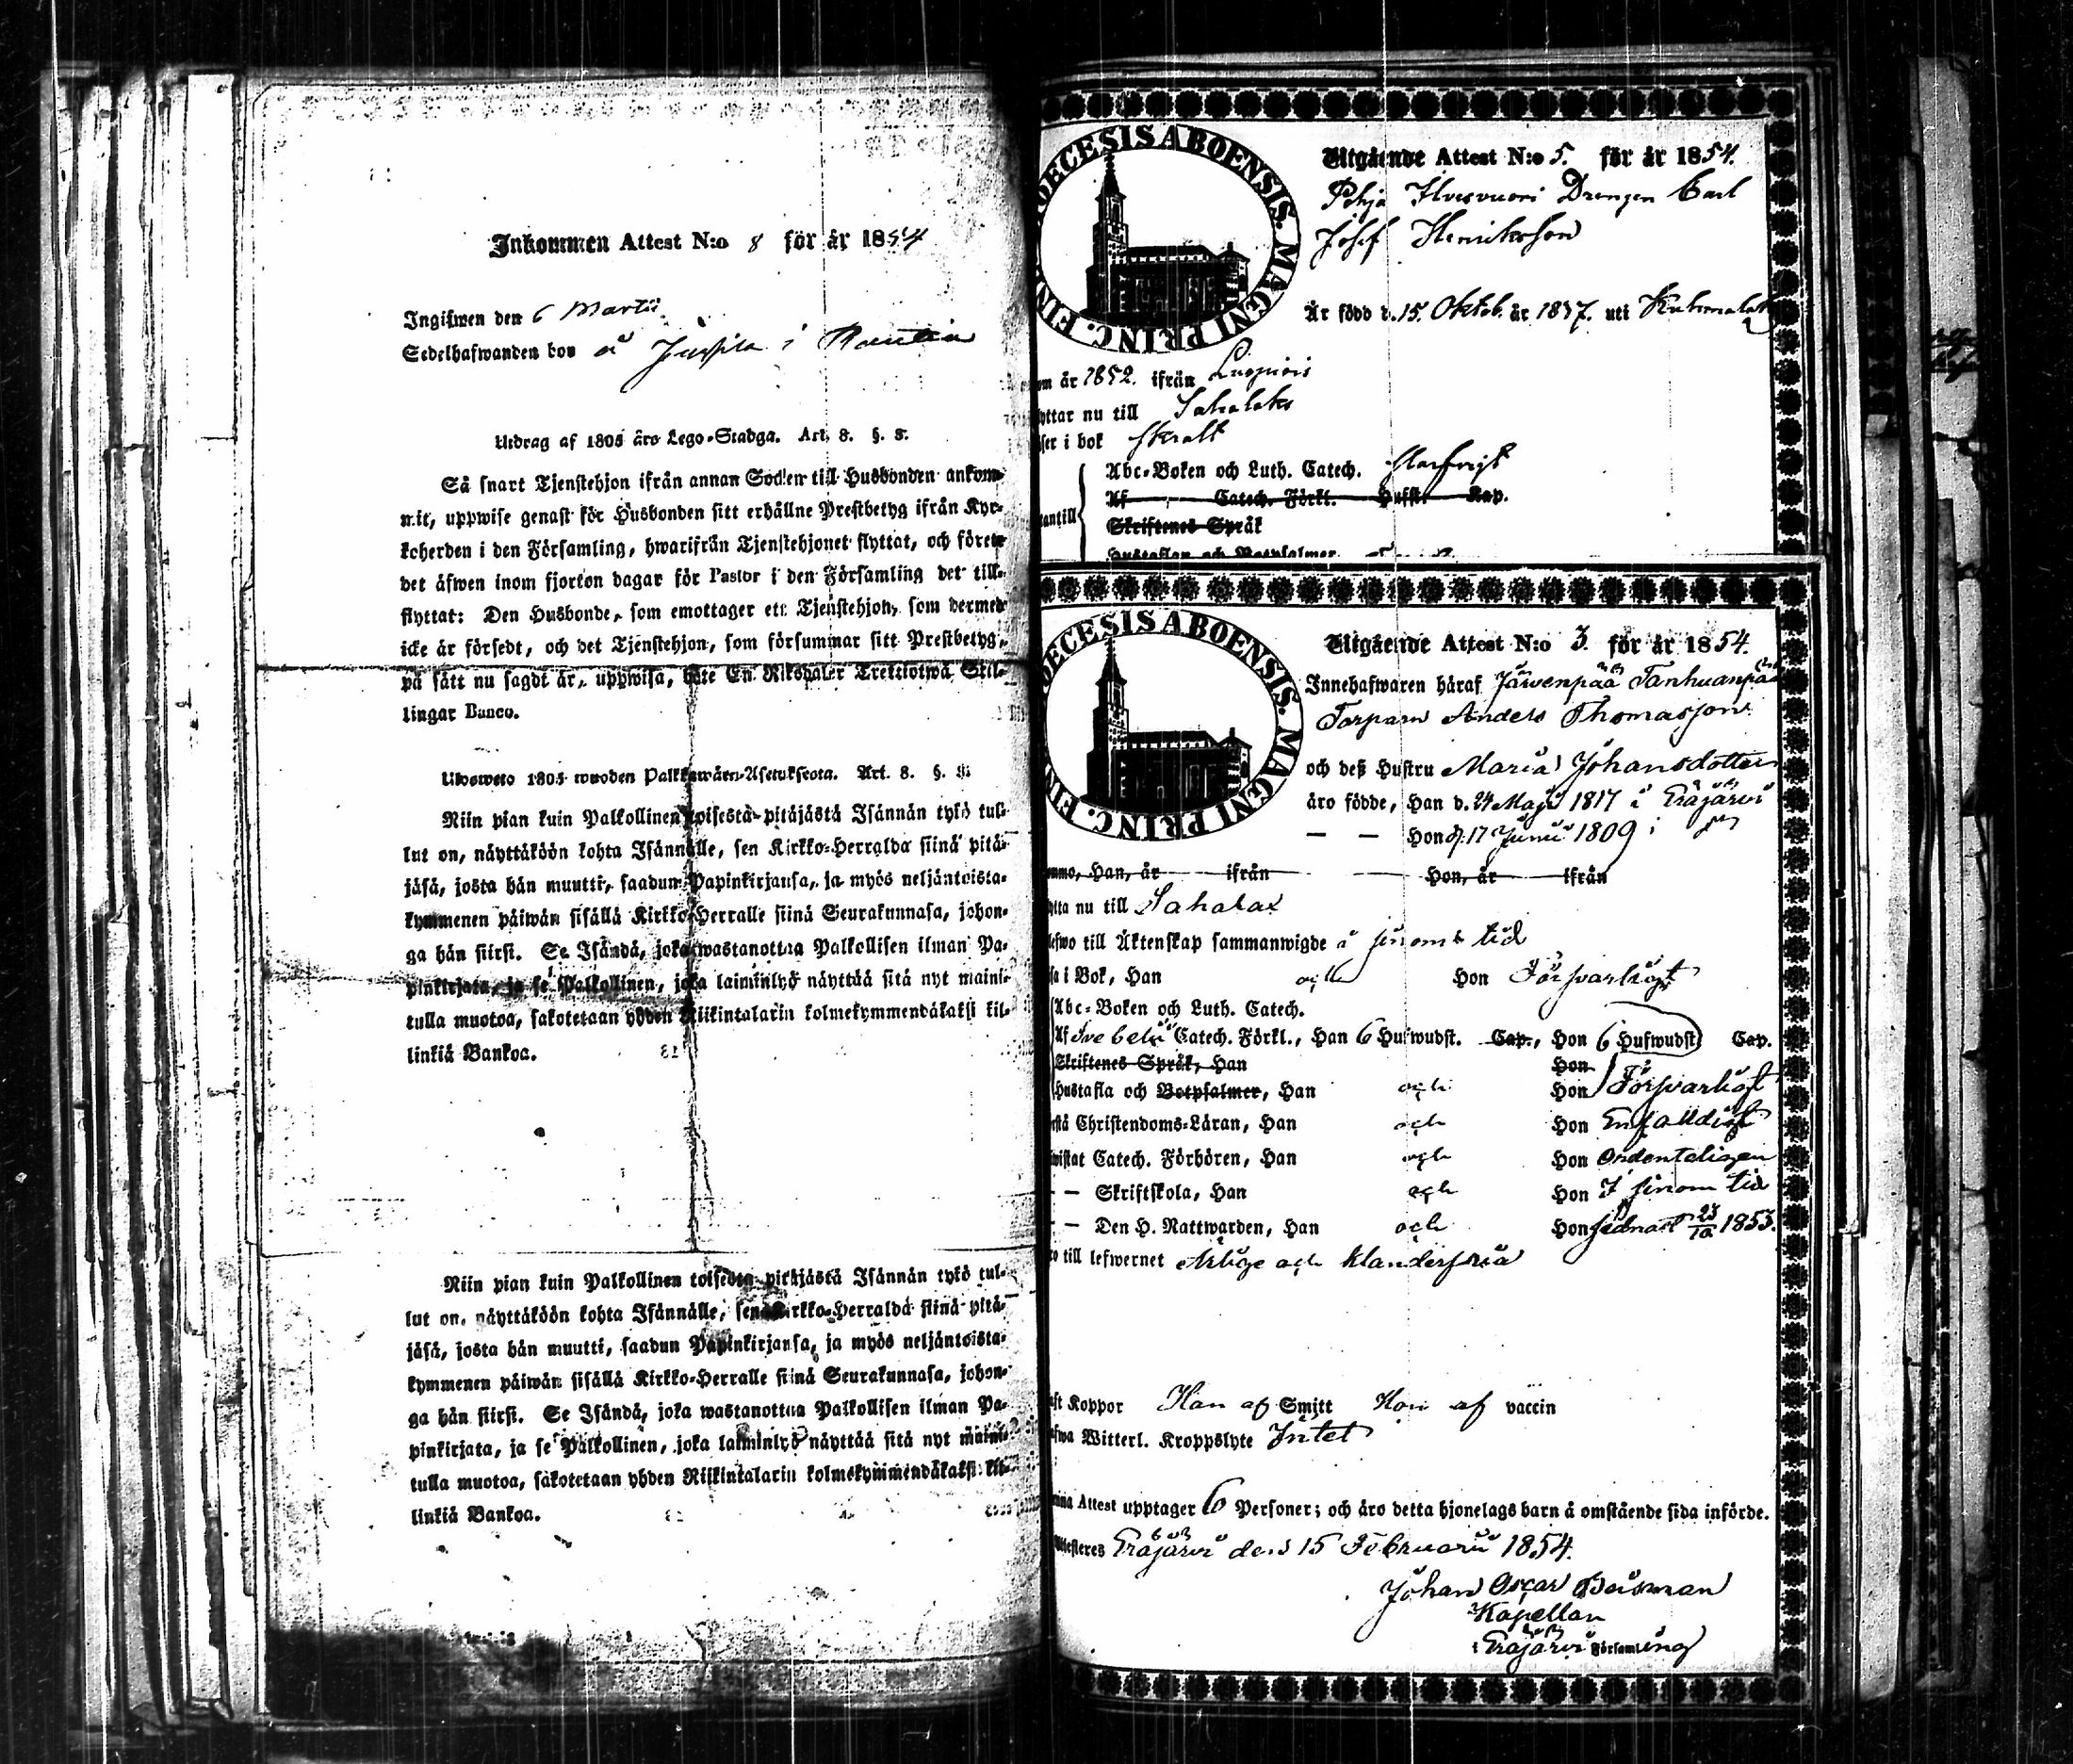 Inkommen Attest N:o 8 för år 1854
Ingifwen den 6 Martii
Sedelhafwanden bor å Jussila i Rautia
Utdrag af 1805 års Lego-Stadga. Art. 8. §. 8.
Så snart Tjenstehjon ifrån annan Socken till Husbonden ankom-
mit, uppwise genast för Husbonden sitt erhållne Prestbetyg ifrån Kyr-
koherden i den Församling, hwarifrån Tjenstehjonet flyttat, och förete
det äfwen inom fjorton dagar för Pastor i den Församling det till-
flyttat: Den Husbonde, som emottager ett Tjenstehjon, som dermed
icke är försedt, och det Tjenstehjon, som försummar sitt Prestbetyg,
på sätt nu sagdt är, uppwisa, böte En Riksdaler Trettiotwå Skil-
lingar Banco.
Ulosweto 1805 wuoden Palkkawäen-Asetuksesta. Art. 8. §. 8.
Niin pian kuin Palkollinen toisesta pitäjästä Isännän tykö tul-
lut on, näyttäköön kohta Isännälle, sen Kirkko-Herralda siinä pitä-
jäsä, josta hän muutti, saadun Papinkirjansa, ja myös neljäntoista-
kymmenen päiwän sisällä Kirkko-Herralle siinä Seurakunnasa, johon-
ga hän siirsi. Se Isändä, joka wastanottaa Palkollisen ilman Pa-
pinkirjata, ja se Palkollinen, joka laiminlyö näyttää sitä nyt maini-
tulla muotoa, sakotetaan yhden Riikintalarin kolmekymmendäkaksi kil-
linkiä Bankoa.
Niin pian kuin Palkollinen toisesta pitäjästä Isännän tykö tul-
lut on, näyttäköön kohta Isännälle, sen Kirkko-Herralda siinä pitä-
jäsä, josta hän muutti, saadun Papinkirjansa, ja myös neljäntoista-
kymmenen päiwän sisällä Kirkko-Herralle siinä Seurakunnasa, johon-
ga hän siirsi. Se Isändä, joka wastanottaa Palkollisen ilman Pa-
pinkirjata, ja se Palkollinen, joka laiminlyö näyttää sitä nyt maini-
tulla muotoa, sakotetaan yhden Riikintalarin kolmekymmendäkaksi kil-
linkiä Bankoa.
OECESIS ABOENSIS. MAGNI PRINC. FIN
Utgående Attest N:o 5. för år 1854.
Pohja Ilvesvuori Drengen Carl
Josef Henriksson
Är född d. 15. Oktob. år 1837. uti Kuhmalaht
om år 1852. ifrån Luopiois
yttar nu till Sahalaks
ser i bok
Abc-Boken och Luth. Catech.
Af Catech. Förkl. Hufst. Kap.
antill
Skriftenes Språk
Hustaflan och Botpsalmer
OECESIS ABOENSIS. MAGNI PRINC. FIN
Utgående Attest N:o 3. för år 1854.
Innehafwaren häraf Järvenpää Tanhuanpää
Torparn Anders Thomasson
och deß Hustru Maria Johansdotter
äro födde, Han d. 24 Maji 1817 i Eräjärvi
— — Hon d. 17 Junii 1809 i
mmo, Han, år ifrån Hon, år ifrån
ytta nu till Sahalax
lefwo till Äktenskap sammanwigde i sinom tid
sa i Bok, Han och Hon Försvarligt
Abc-Boken och Luth. Catech.
Af Svebelii Catech. Förkl., Han 6 Hufwudst. Cap., Hon 6 Hufwudst Cap.
Skriftenes Språk, Han Hon
Hustafla och Botpsalmer, Han och Hon Försvarligt
stå Christendoms-Läran, Han och Hon Enfalldigt
wistat Catech. Förhören, Han och Hon Ordenteligen
— — Skriftskola, Han och Hon I sinom tid
— — Den H. Nattwarden, Han och Hon sednast 23/10 1853.
ro till lefwernet Ärlige och klanderfria
aft Koppor Han af Smitt Hon af vaccin
afwa Witterl. Kroppslyte Intet
enna Attest upptager 6 Personer; och äro detta hjonelags barn å omstående sida införde.
Attesteres Eräjärvi den 15 Februarii 1854.
Johan Oscar
Kapellan
i Eräjärvi Församling